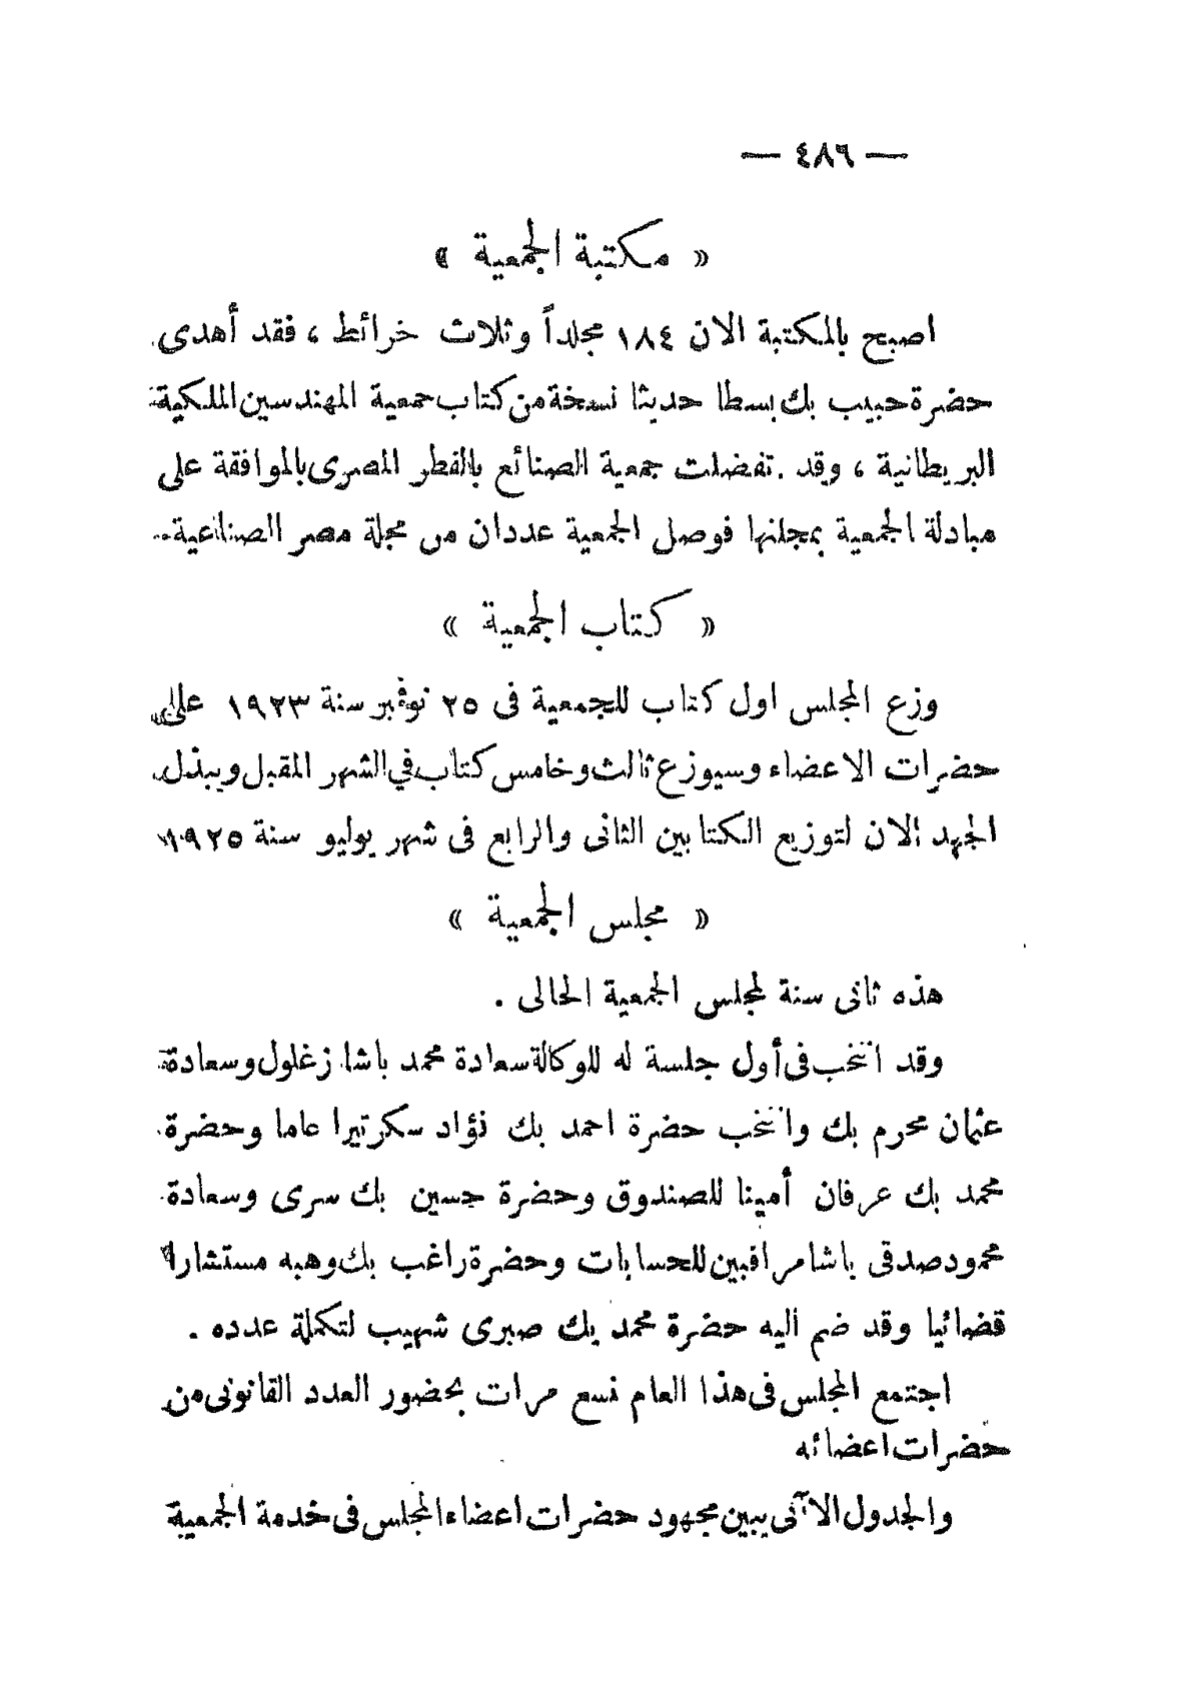 — ٤٨٦ —
« مكتبة الجمعية »
اصبح بالمكتبة الان ١٨٤ مجلداً وثلاث خرائط ، فقد أهدى
حضرة حبيب بك بسطا حديثا نسخة من كتاب جمعية المهندسين الملكية
البريطانية ، وقد تفضلت جمعية الصنائع بالقطر المصرى بالموافقة على
مبادلة الجمعية بمجلتها فوصل الجمعية عددان من مجلة مصر الصناعية
« كتاب الجمعية »
وزع المجلس اول كتاب للجمعية فى ٢٥ نوفمبر سنة ١٩٢٣ على
حضرات الاعضاء وسيوزع ثالث وخامس كتاب في الشهر المقبل ويبذل
الجهد الان لتوزيع الكتابين الثانى والرابع فى شهر يوليو سنة ١٩٢٥
« مجلس الجمعية »
هذه ثانى سنة لمجلس الجمعية الحالى .
وقد انتخب فى أول جلسة له للوكالة سعادة محمد باشا زغلول وسعادة
عثمان محرم بك وانتخب حضرة احمد بك فؤاد سكرتيرا عاما وحضرة
محمد بك عرفان أمينا للصندوق وحضرة حسين بك سرى وسعادة
محمود صدقى باشا مراقبين للحسابات وحضرة راغب بك وهبه مستشارا
قضائيا وقد ضم اليه حضرة محمد بك صبرى شهيب لتكملة عدده .
اجتمع المجلس فى هذا العام تسع مرات بحضور العدد القانونى من
حضرات اعضائه
والجدول الآتى يبين مجهود حضرات اعضاء المجلس فى خدمة الجمعية